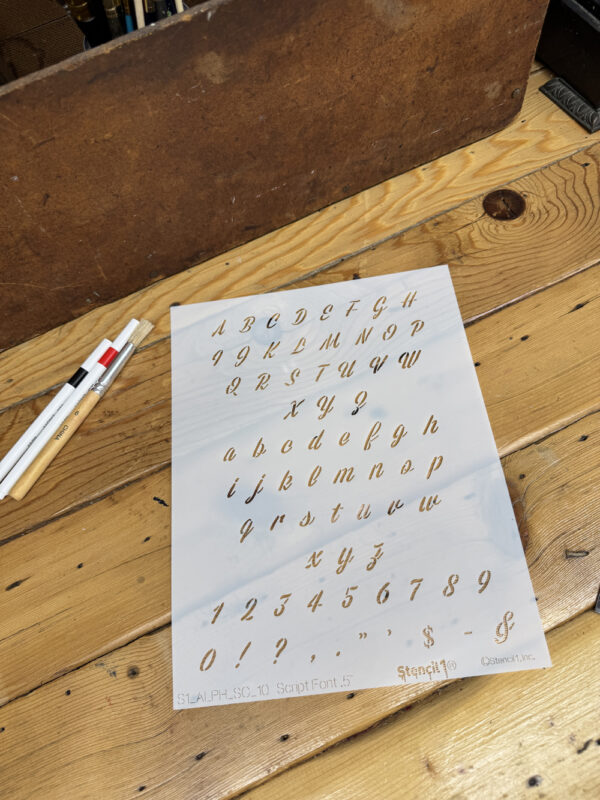 A B C D E F G H
I J K L M N O P
Q R S T U V W
X Y Z
a b c d e f g h
i j k l m n o p
q r s t u v w
x y z
1 2 3 4 5 6 7 8 9
0 ! ? , . " ' $ - &
S1_ALPH_SC_10 Script Font .5" Stencil1® ©Stencil1, Inc.
CHINA 6